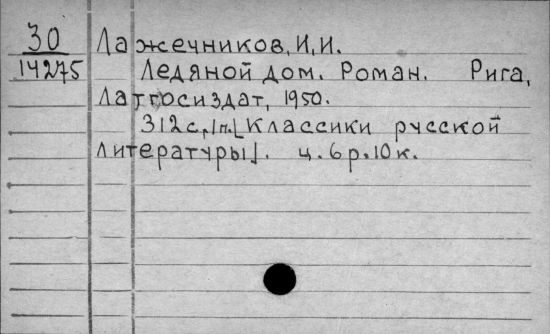 30 Лажечников, И, И.
14275 Ледяной дом. Роман. Рига,
Латгосиздат, 1950.
312 с, [Классики русской
литературы]. ц. 6 р. 10 к.